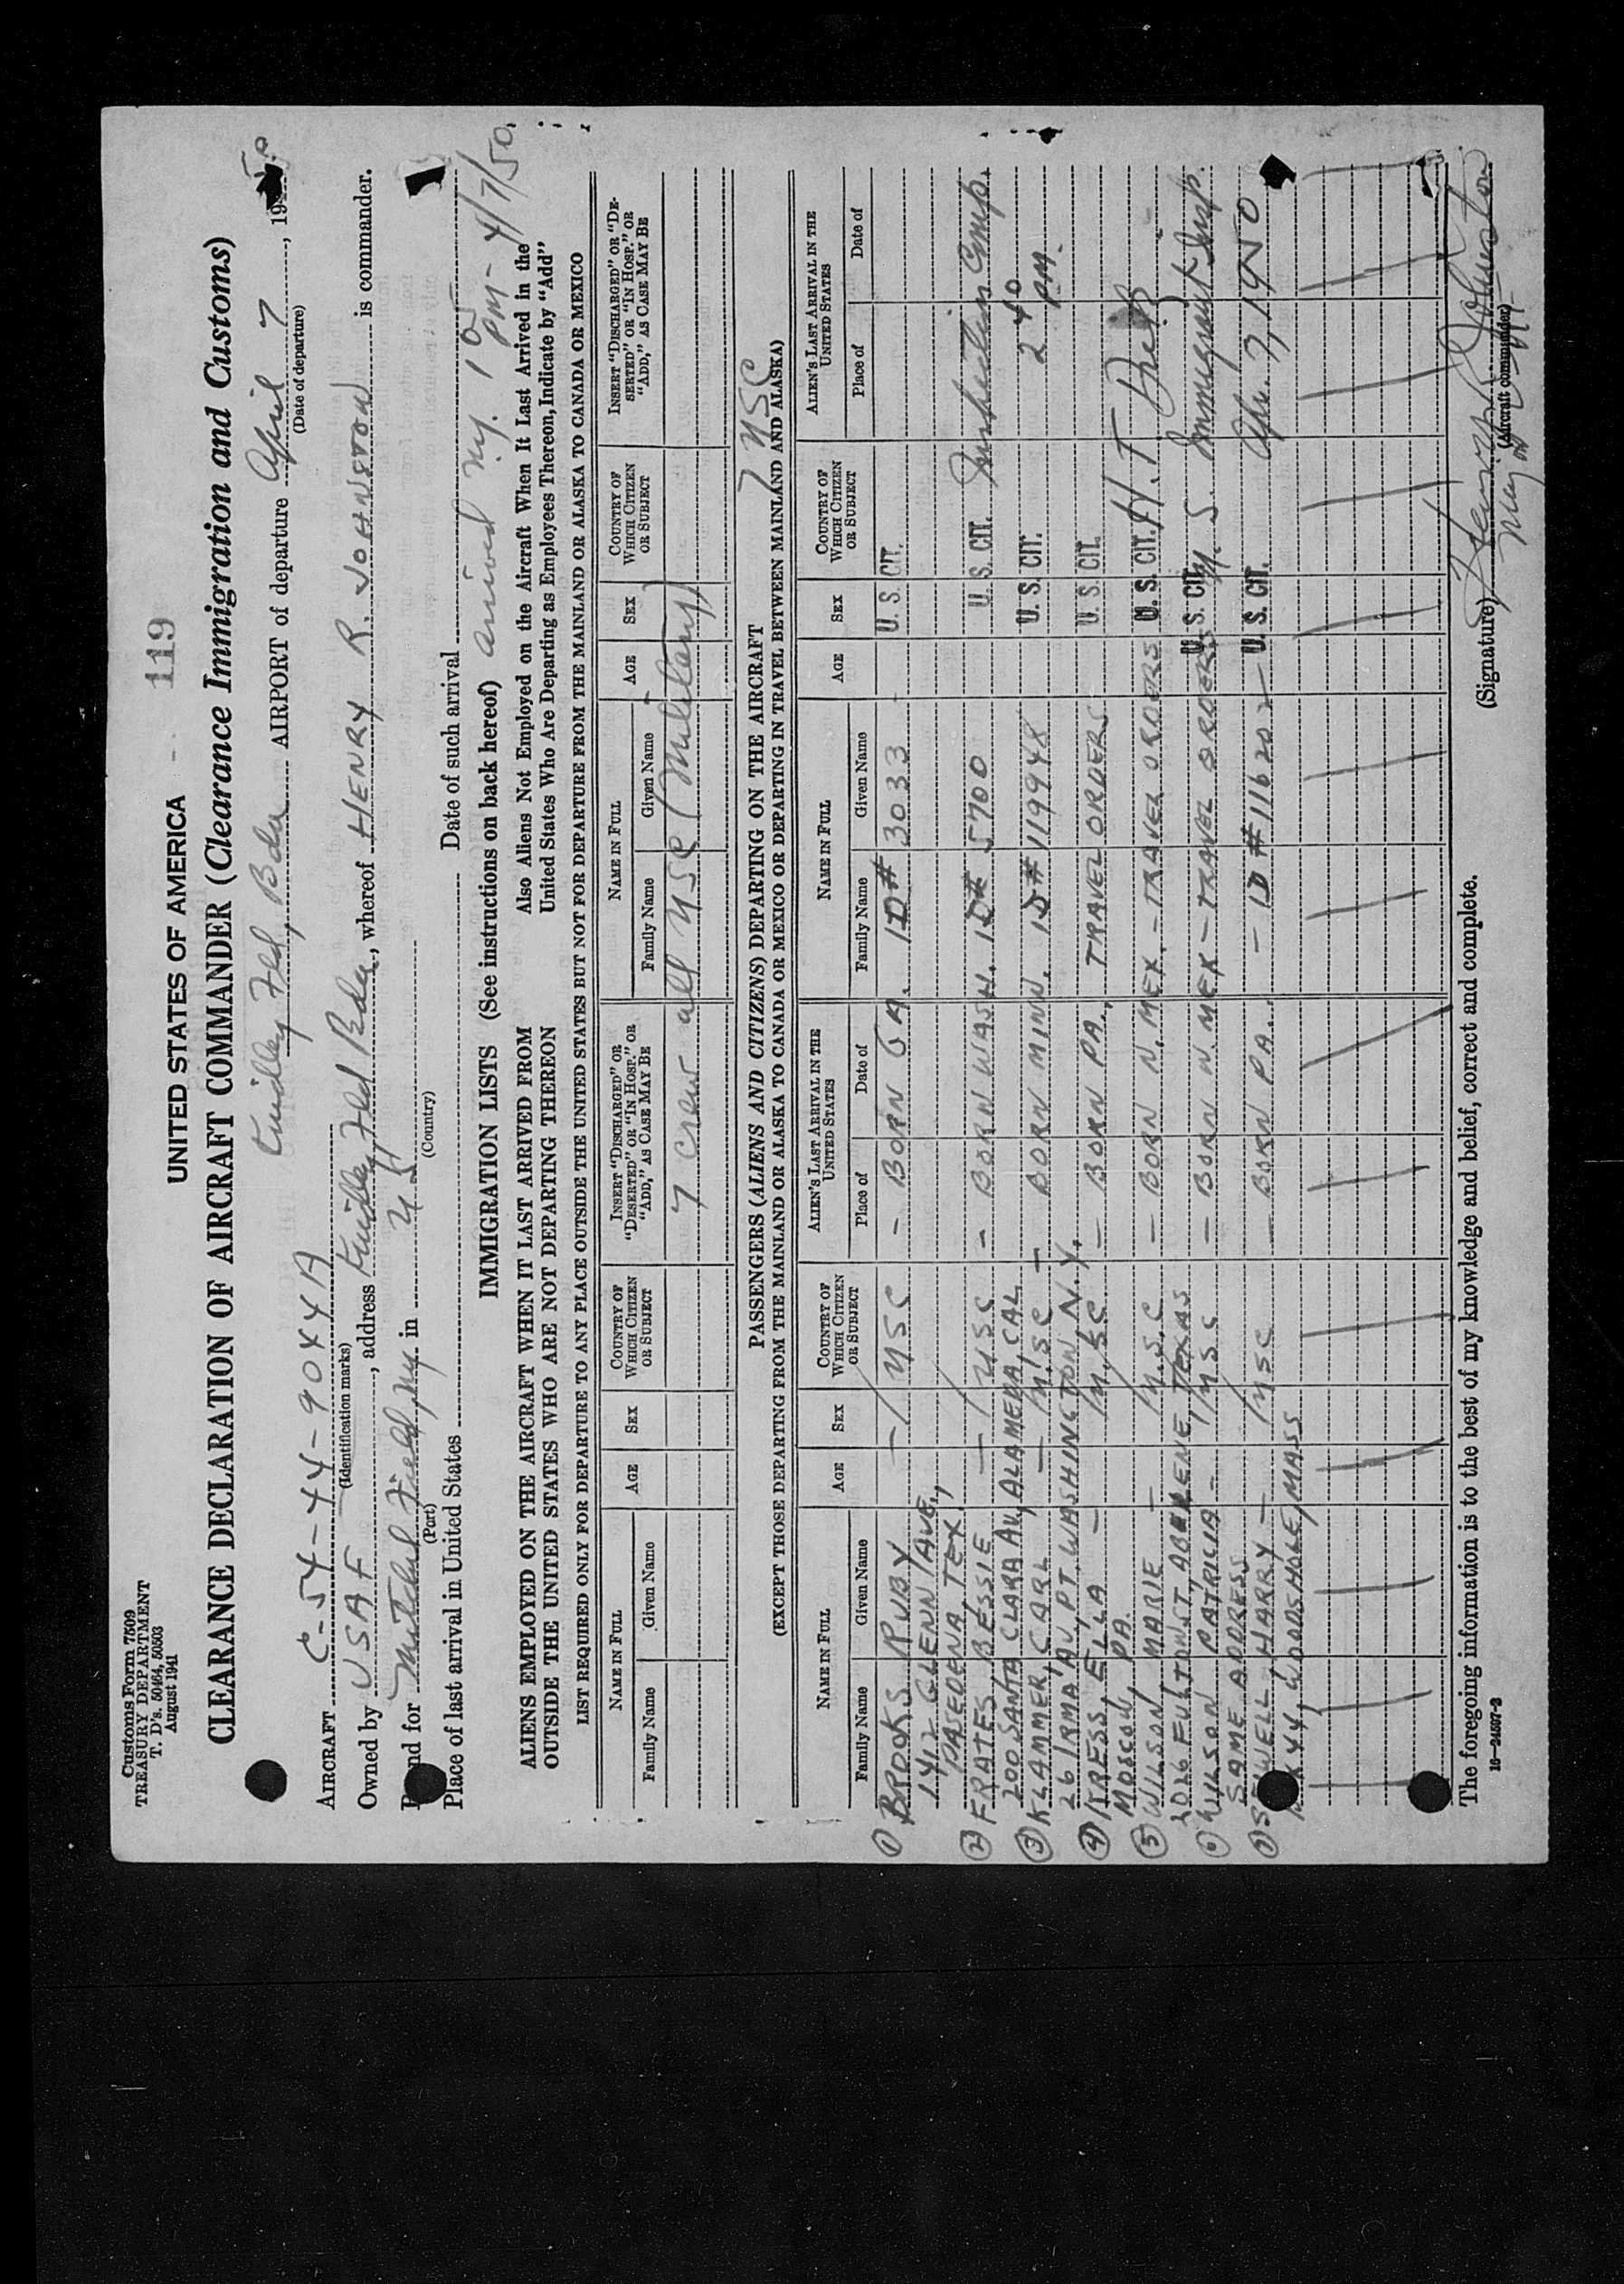 119
Customs Form 7509
TREASURY DEPARTMENT
T. D's. 50464, 50503
August 1941
UNITED STATES OF AMERICA
CLEARANCE DECLARATION OF AIRCRAFT COMMANDER (Clearance Immigration and Customs)
Kindley Fld, Bda AIRPORT of departure April 7, 1950
(Date of departure)
AIRCRAFT C-54-44-9044A
(Identification marks)
Owned by USAF, address Kindley Fld Bda, whereof HENRY R. JOHNSTON is commander.
Bound for Mitchel Field, NY in US
(Port) (Country)
Place of last arrival in United States Date of such arrival
arrived NY. 1 05 PM - 4/7/50
IMMIGRATION LISTS (See instructions on back hereof)
ALIENS EMPLOYED ON THE AIRCRAFT WHEN IT LAST ARRIVED FROM OUTSIDE THE UNITED STATES WHO ARE NOT DEPARTING THEREON
Also Aliens Not Employed on the Aircraft When It Last Arrived in the United States Who Are Departing as Employees Thereon, Indicate by "Add"
LIST REQUIRED ONLY FOR DEPARTURE TO ANY PLACE OUTSIDE THE UNITED STATES BUT NOT FOR DEPARTURE FROM THE MAINLAND OR ALASKA TO CANADA OR MEXICO
NAME IN FULL AGE SEX COUNTRY OF WHICH CITIZEN OR SUBJECT INSERT "DISCHARGED" OR "DESERTED" OR "IN HOSP." OR "ADD," AS CASE MAY BE NAME IN FULL AGE SEX COUNTRY OF WHICH CITIZEN OR SUBJECT INSERT "DISCHARGED" OR "DESERTED" OR "IN HOSP." OR "ADD," AS CASE MAY BE
Family Name Given Name Family Name Given Name
7 crew all USC (Military)
7 USC
PASSENGERS (ALIENS AND CITIZENS) DEPARTING ON THE AIRCRAFT
(EXCEPT THOSE DEPARTING FROM THE MAINLAND OR ALASKA TO CANADA OR MEXICO OR DEPARTING IN TRAVEL BETWEEN MAINLAND AND ALASKA)
NAME IN FULL AGE SEX COUNTRY OF WHICH CITIZEN OR SUBJECT ALIEN'S LAST ARRIVAL IN THE UNITED STATES NAME IN FULL AGE SEX COUNTRY OF WHICH CITIZEN OR SUBJECT ALIEN'S LAST ARRIVAL IN THE UNITED STATES
Family Name Given Name Place of Date of Family Name Given Name Place of Date of
① BROOKS RUBY - / USC - BORN GA. ID# 3033 U. S. CIT.
1412 GLENN AVE.,
PASEDENA, TEX.
② FRATES, BESSIE - / USC - BORN WASH. ID# 5700 U. S. CIT. Insp.
200 SANTA CLARA AV, ALAMEDA, CAL
③ KLAMMER, CARL - / USC - BORN MINN. ID# 119948 U. S. CIT. 2 40 PM.
26 IRMA AV, PT. WASHINGTON, N.Y.
④ IRESS, ELLA - / USC - BORN PA., TRAVEL ORDERS U. S. CIT.
MOSCOW, PA.
⑤ WILSON, MARIE - / USC - BORN N. MEX. - TRAVEL ORDERS U. S. CIT. H. T.
2026 FULTON ST, ABILENE, TEXAS
⑥ WILSON PATRICIA - / USC - BORN N. MEX - TRAVEL ORDERS U. S. CIT. U. S. Immigrant Insp.
SAME ADDRESS
⑦ SEWELL, HARRY - / USC - BORN PA. - ID #116202 - U. S. CIT. Apr. 7, 1950
BX 44, WOODSHOLE, MASS
The foregoing information is to the best of my knowledge and belief, correct and complete.
(Signature) Henry R Johnston
(Aircraft commander)
16-24597-2